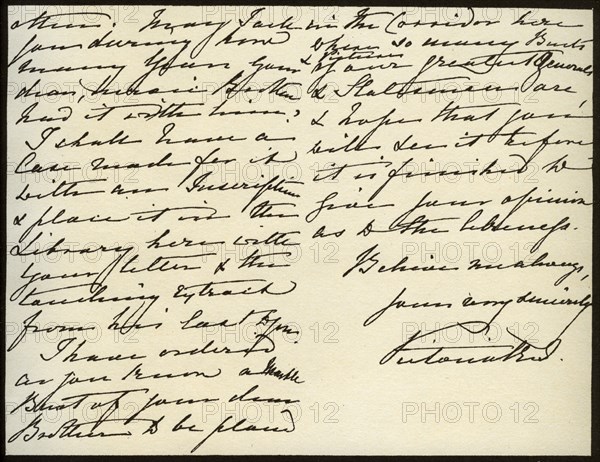 often. May I ask
you during how
many years your
dear, heroic Brother
had it with him?
I shall have a
Case made for it
with an Inscription
& place it in the
Library here with
your letter & the
touching extract
from his last to you.
I have ordered
as you know a Marble
Bust of your dear
Brother to be placed
in the Corridor here
where so many Busts
& Pictures
of our greatest Generals
& Statesmen are,
& hope that you
will see it before
it is finished to
give your opinion
as to the likeness.
Believe me always,
yours very sincerely
Victoria R.I.
PHOTO 12